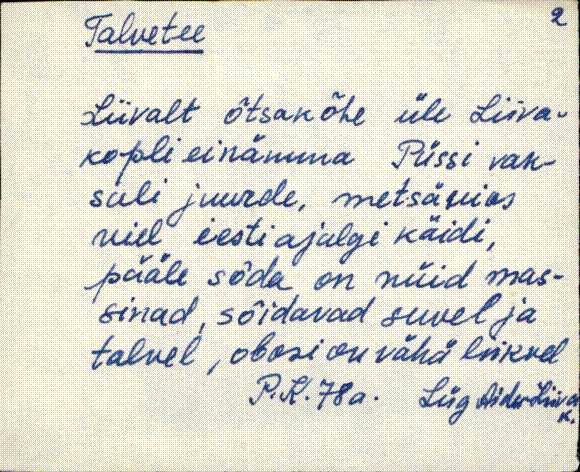 2
Talvetee
Liivalt õtsakõhe üle Liiva-
kopli einämma Püssi vak-
sali juurde, metsävios
viel eesti ajalgi käidi,
pääle sõda on nüid mas-
sinad, sõidavad suvel ja
talvel, obosi on vähä liikvel
P.K. 78a. Lüg Aidu Liiva
k.